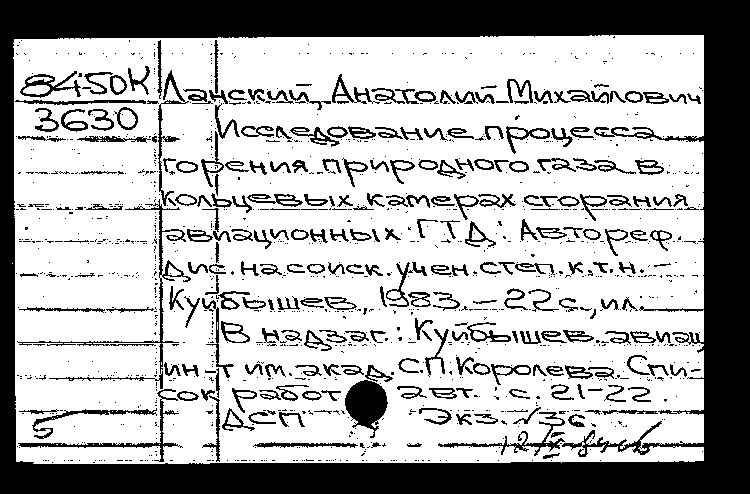 84-50К Ланский, Анатолий Михайлович
3630 Исследование процесса
горения природного газа в
кольцевых камерах сгорания
авиационных ГТД : Автореф.
дис. на соиск. учен. степ. к.т.н. –
Куйбышев, 1983. – 22 с., ил.
В надзаг.: Куйбышев. авиац.
ин-т им. акад. С.П. Королева. Спи-
сок работ авт. : с. 21-22.
5 ДСП Экз. №36